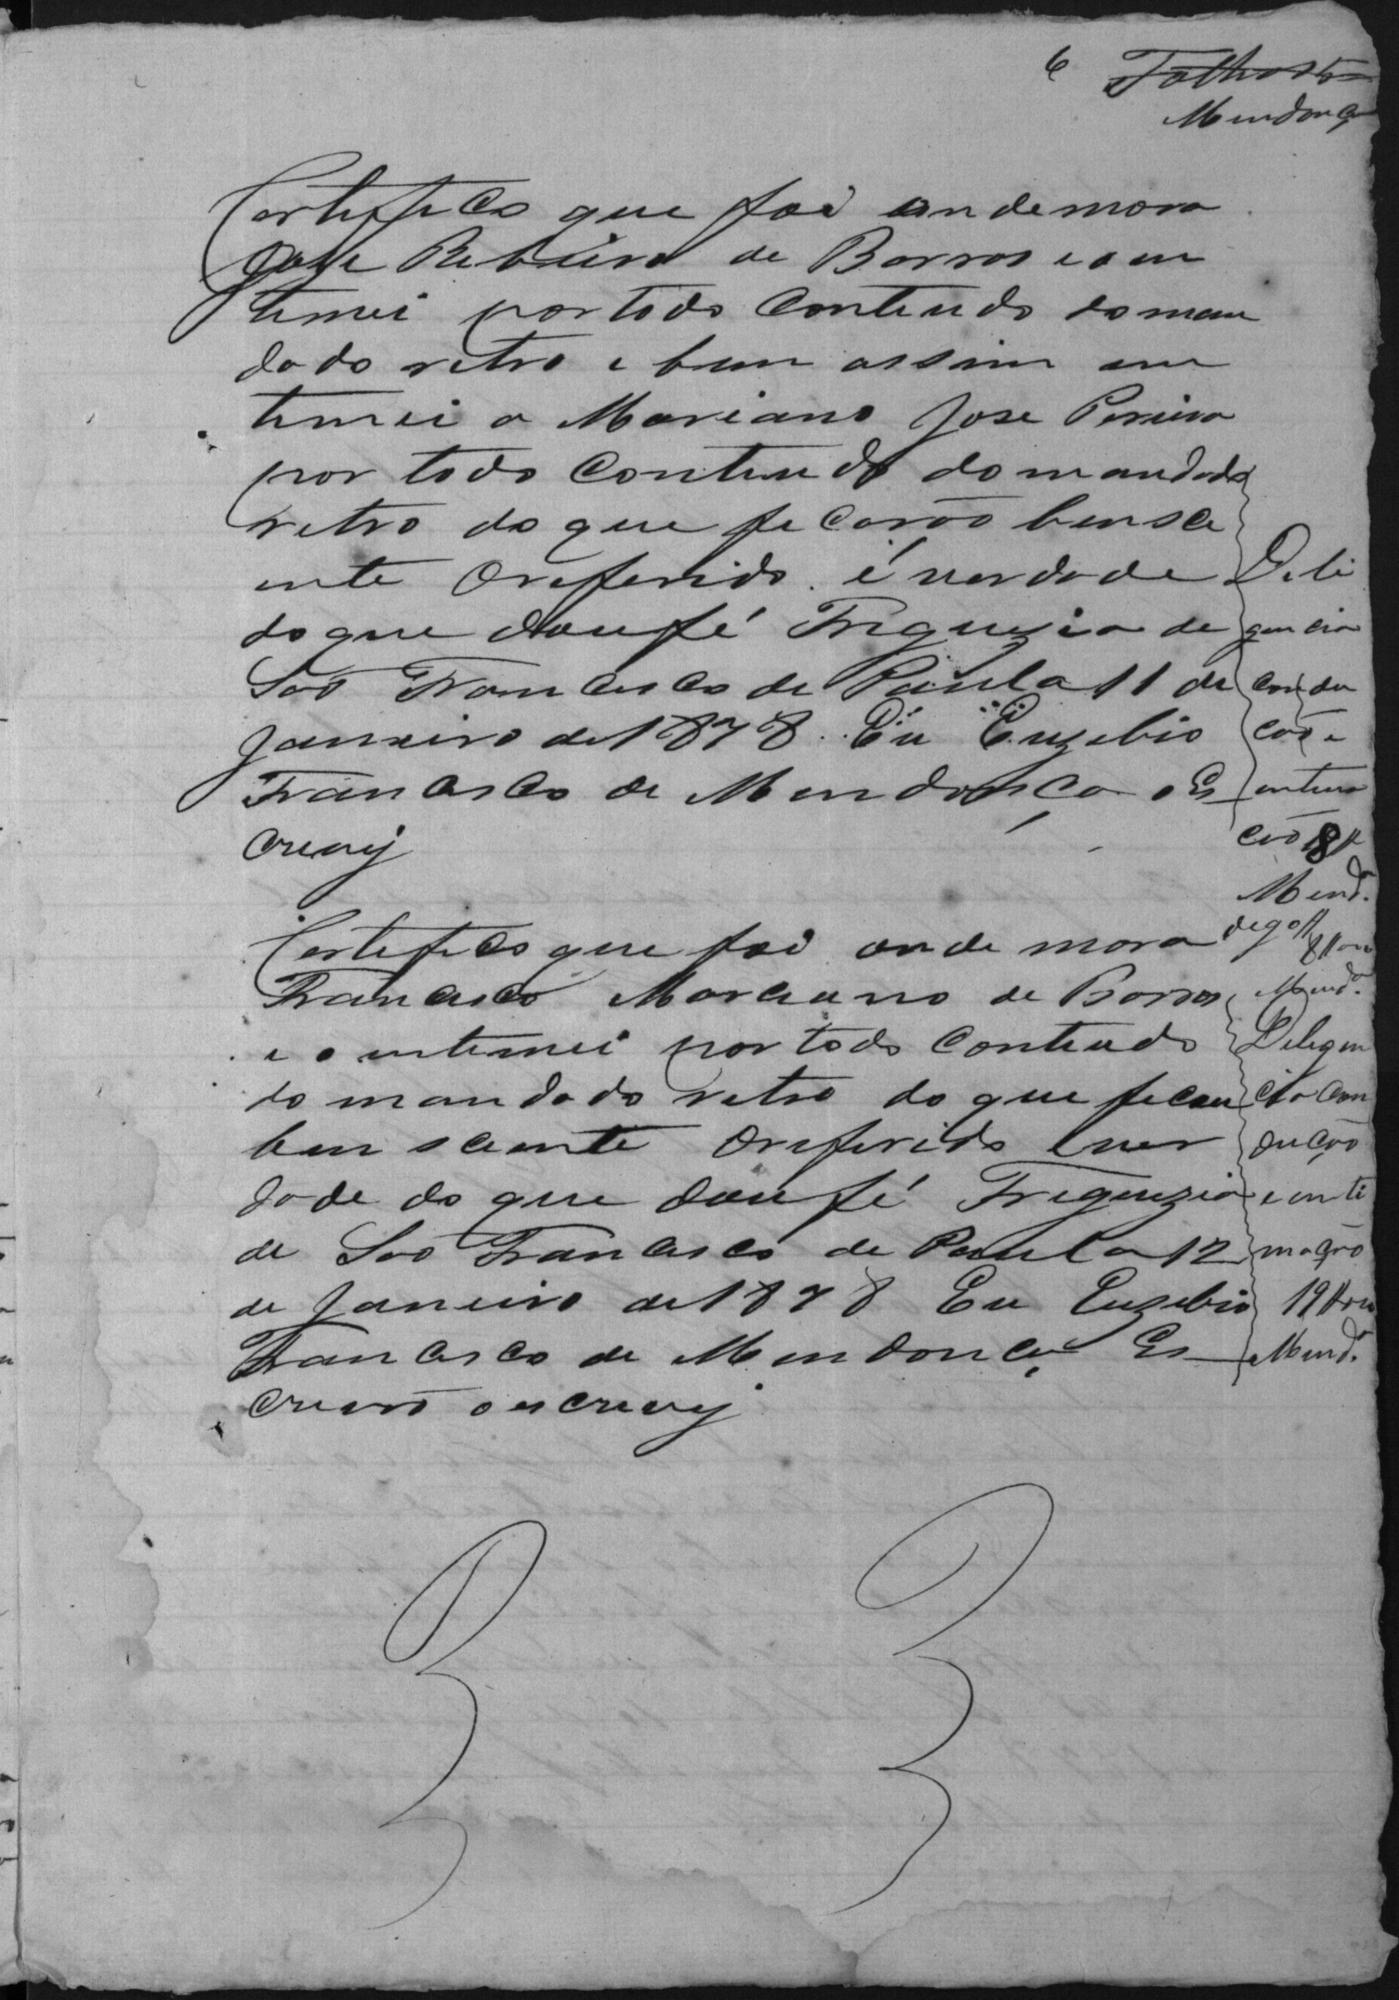 6 Folhas 5
Mendonça
Certifico que foi ondemora
Jose Ribeiro de Barros e o in
timei por todo Conteudo do man
dado retro e bem assim in
timei a Mariano Jose Pereira
por todo Conteudo do mandado
retro do que ficarão bensci
ente Oreferido é verdade
do que doufé Freguezia de
São Francisco de Paula 11 de
Janeiro de 1878. Eu Euzebio
Francisco de Mendonça o Es
crevy
Deli
gencia
condu
cão e
intima
cão 18
Mend.ª
Certifico que foi onde mora
Francisco Marciano de Barros
e o intimei por todo Conteudo
do mandado retro do que ficou
bem sciente Oreferido e ver
dade do que doufé Freguezia
de São Francisco de Paula 12
de Janeiro de 1878 Eu Euzebio
Francisco de Mendonça Es
crivão o escrevy
Mend.ª
Deligen
cia con
dução
e inti
mação
19
Mend.ª